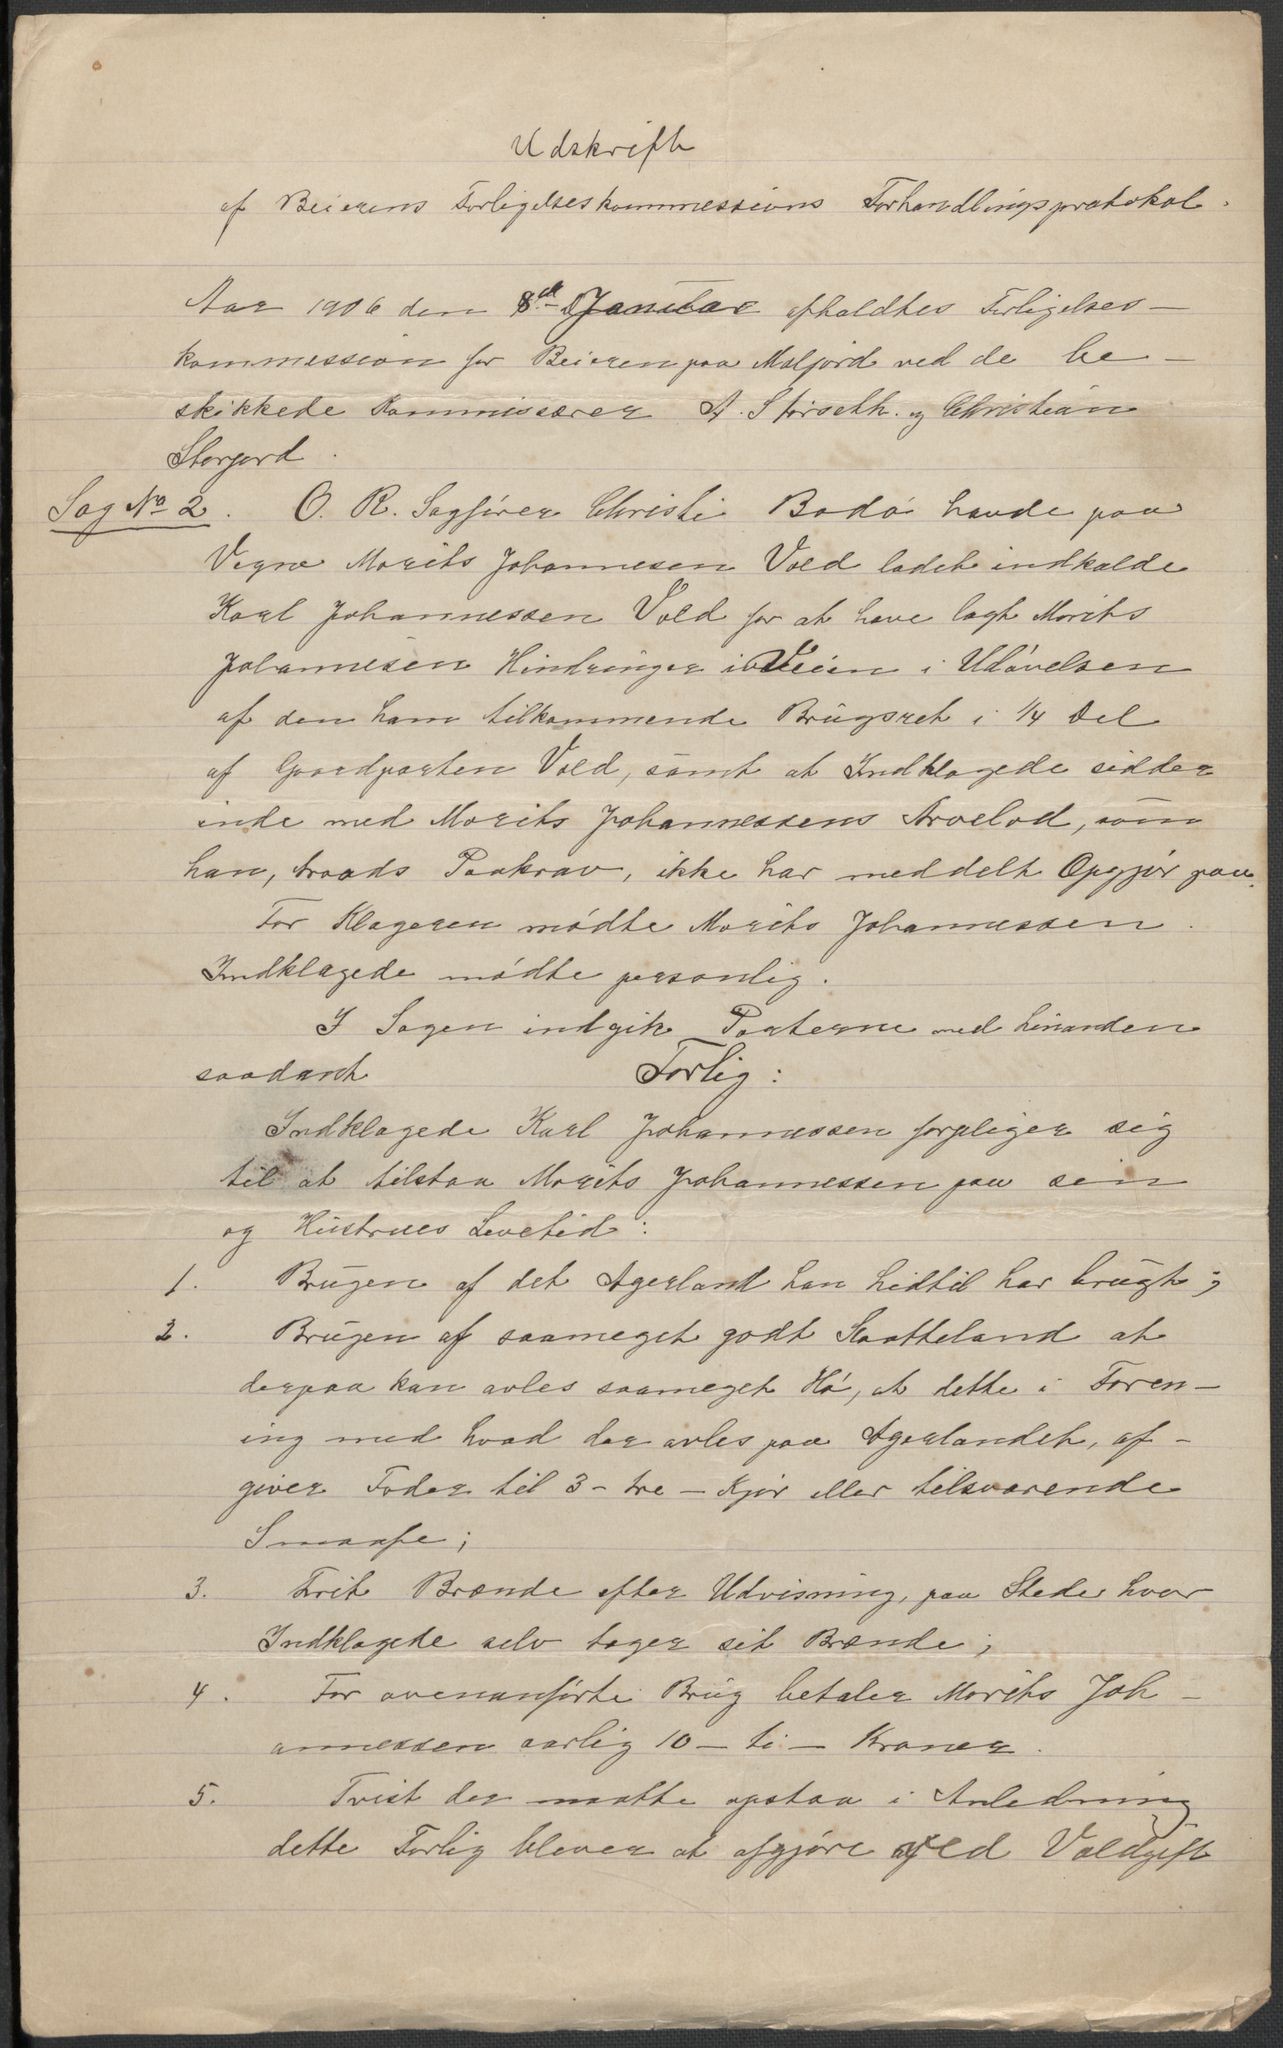 Udskrift
af Beierens Forligelseskommessions Forhandlingsprotokol.
Aar 1906 den 8de Januar afholdtes Forligelses-
kommession for Beieren paa Molfjord ved de be-
skikkede Kommissærer A. Storseth. og Christian
Storjord.
Sag No 2. O. R. Sagfører Christi Bodø havde paa
Vegne Morits Johannesen Vold ladet indkalde
Karl Johannessen Vold for at have lagt Morits
Johannesen Hindringer i Veien i Udøvelsen
af den ham tilkommende Brugsret i 1/4 Del
af Gaardparten Vold, samt at Indklagede sidder
inde med Morits Johannessens Arvelod, som
han, traads Paakrav, ikke har meddelt Opgjør paa.
For Klageren mødte Morits Johannessen.
Indklagede mødte personlig.
I Sagen indgik Parterne med hinanden
saadant Forlig:
Indklagede Karl Johannessen forpliger sig
til at tilstaa Morits Johannessen paa sin
og Hustrues Levetid:
1. Brugen af det Agerland han hidtil har brugt;
2. Brugen af saameget godt Slaatteland at
derpaa kan avles saameget Hø, at dette i Foren-
ing med hvad der avles paa Agerlandet, af-
giver Foder til 3 - tre - Kjør eller tilsvarende
Smaafe;
3. Frit Brænde efter Udvisning, paa Steder hvor
Indklagede selv tager sit Brænde;
4. For ovenanførte Brug betaler Morits Joh-
annessen aarlig 10 - ti - Kroner.
5. Tvist der maatte opstaa i Anledning
dette Forlig blever at afgjøre ved Voldgift